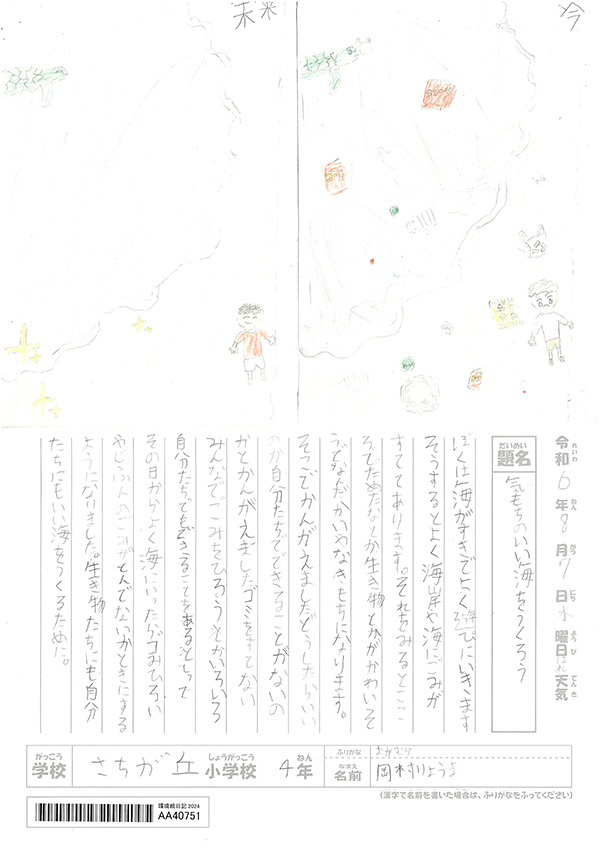 未来
今
令和6年8月7日水曜日はれ天気
れいわ ねん がつ にち ようび てんき
だいめい
題名
気もちのいい海をつくろう
ぼくは海がすきでよく遊びにいきます
そうするとよく海岸や海にごみが
すててあります。それをみるとここ
ろでだめだなとか生き物とかがかわいそ
うでなんだかいやなきもちになります。
そこでかんがえましたどうしたらいい
のか自分たちでできることがないの
かとかんがえましたゴミをすてない
みんなでごみをひろうとかいろいろ
自分たちでもできることをあるとしって
その日からよく海にいったらゴみひろい
やじぶんのごみがとんでないかときにする
ようになりました。生き物たちにも自分
たちにもいい海をつくるために。
がっこう
学校
さちが丘
しょうがっこう
小学校
4
ねん
年
ふりがな
おかむら
なまえ
名前
岡村りょうま
(漢字で名前を書いた場合は、ふりがなをふってください)
環境絵日記 2024
AA40751